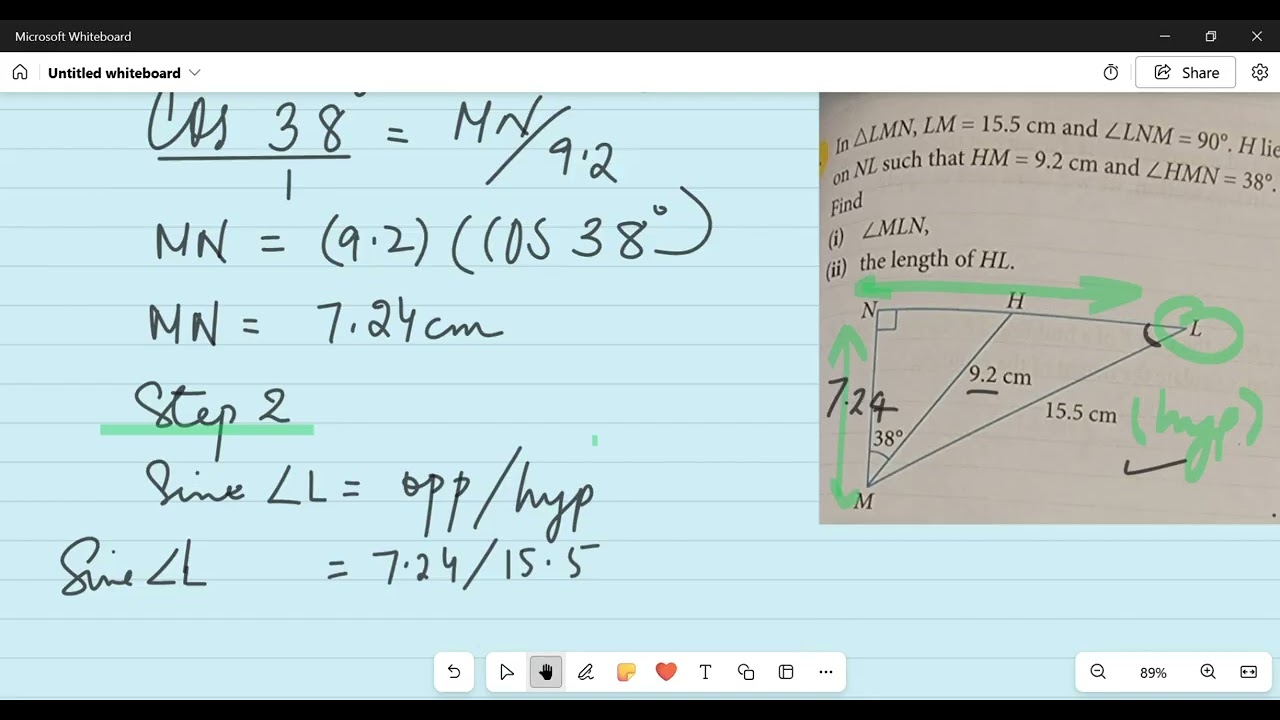 Microsoft Whiteboard
Untitled whiteboard
Share
Cos 38° = MN/9.2
1
MN = (9.2) (Cos 38°)
MN = 7.24cm
Step 2
Sine ∠L = opp/hyp
Sine ∠L = 7.24/15.5
In △LMN, LM = 15.5 cm and ∠LNM = 90°. H lie
on NL such that HM = 9.2 cm and ∠HMN = 38°.
Find
(i) ∠MLN,
(ii) the length of HL.
N
H
L
9.2 cm
7.24
15.5 cm
(hyp)
38°
M
T
89%